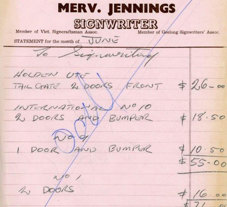 MERV. JENNINGS
SIGNWRITER
Member of Vict. Signcraftsman Assoc. Member of Geelong Signwriters' Assoc.
STATEMENT for the month of JUNE
To Signwriting
HOLDEN UTE
TAILGATE 2 DOORS FRONT $26-00
INTERNATIONAL No 10
2 DOORS AND BUMPER $18.50
No 9
1 DOOR AND BUMPER $10.50
$55-00
No 1
2 DOORS $16.00
$71
Paid